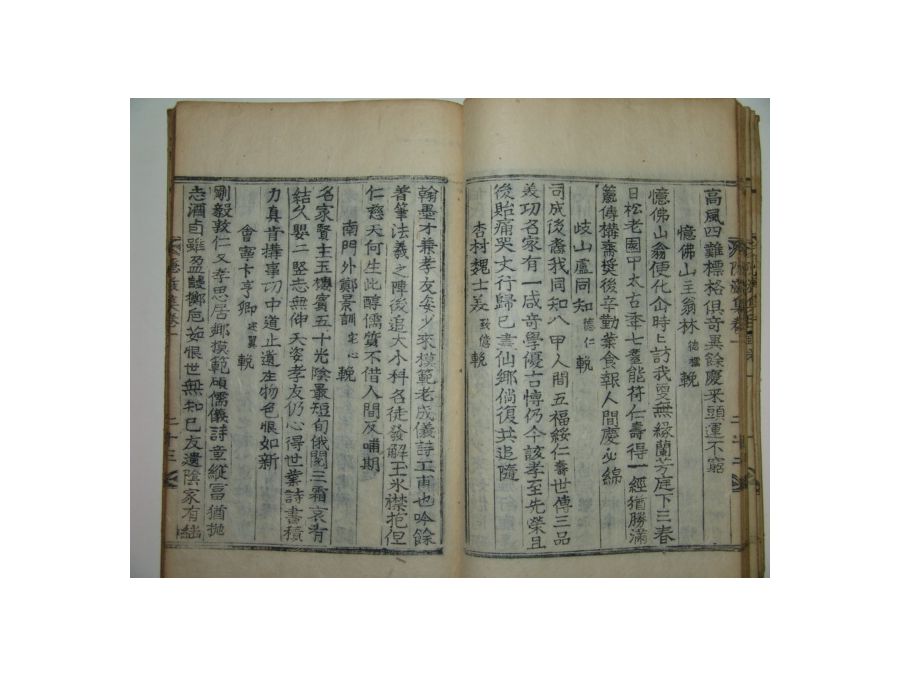 高風四難標格俱奇異餘慶釆頭運不窮
憶佛山主翁林德權輓
憶佛山翁便化㕕時〻訪我更無緣蘭芳庭下三春
日松老園中太古秊七耋能符仁壽得一經猶勝滿
籯傳構齋奬後辛勤業食報人間慶必綿
岐山盧同知德仁輓
司成後裔我同知八甲人間五福綏仁壽世傳三品
義功名家有一歲奇學優古博仍今該孝至先榮且
後貽痛哭丈行歸已盡仙鄕倘復共追隨
杏村魏士義致億輓
翰墨才兼孝友姿少來模範老成儀詩工甫也吟餘
着筆法羲之陣後追大小科名徒發解玉氷襟抱但
仁慈天何生此醇儒質不借人間反哺期
南門外鄭景訓宅心輓
名家賢主玉樓賓五十光陰最短旬俄闋三霜哀有
結久嬰二竪志無伸天姿孝友仍心得世業詩書積
力眞肯構事功中道止遺左物色恨如新
會寧卞亨卿廷翼輓
剛毅敦仁又孝思居鄕模範碩儒儀詩童縱富猶抛
志酒卣雖盈謾擲巵茹恨世無知已友遺陰家有繼